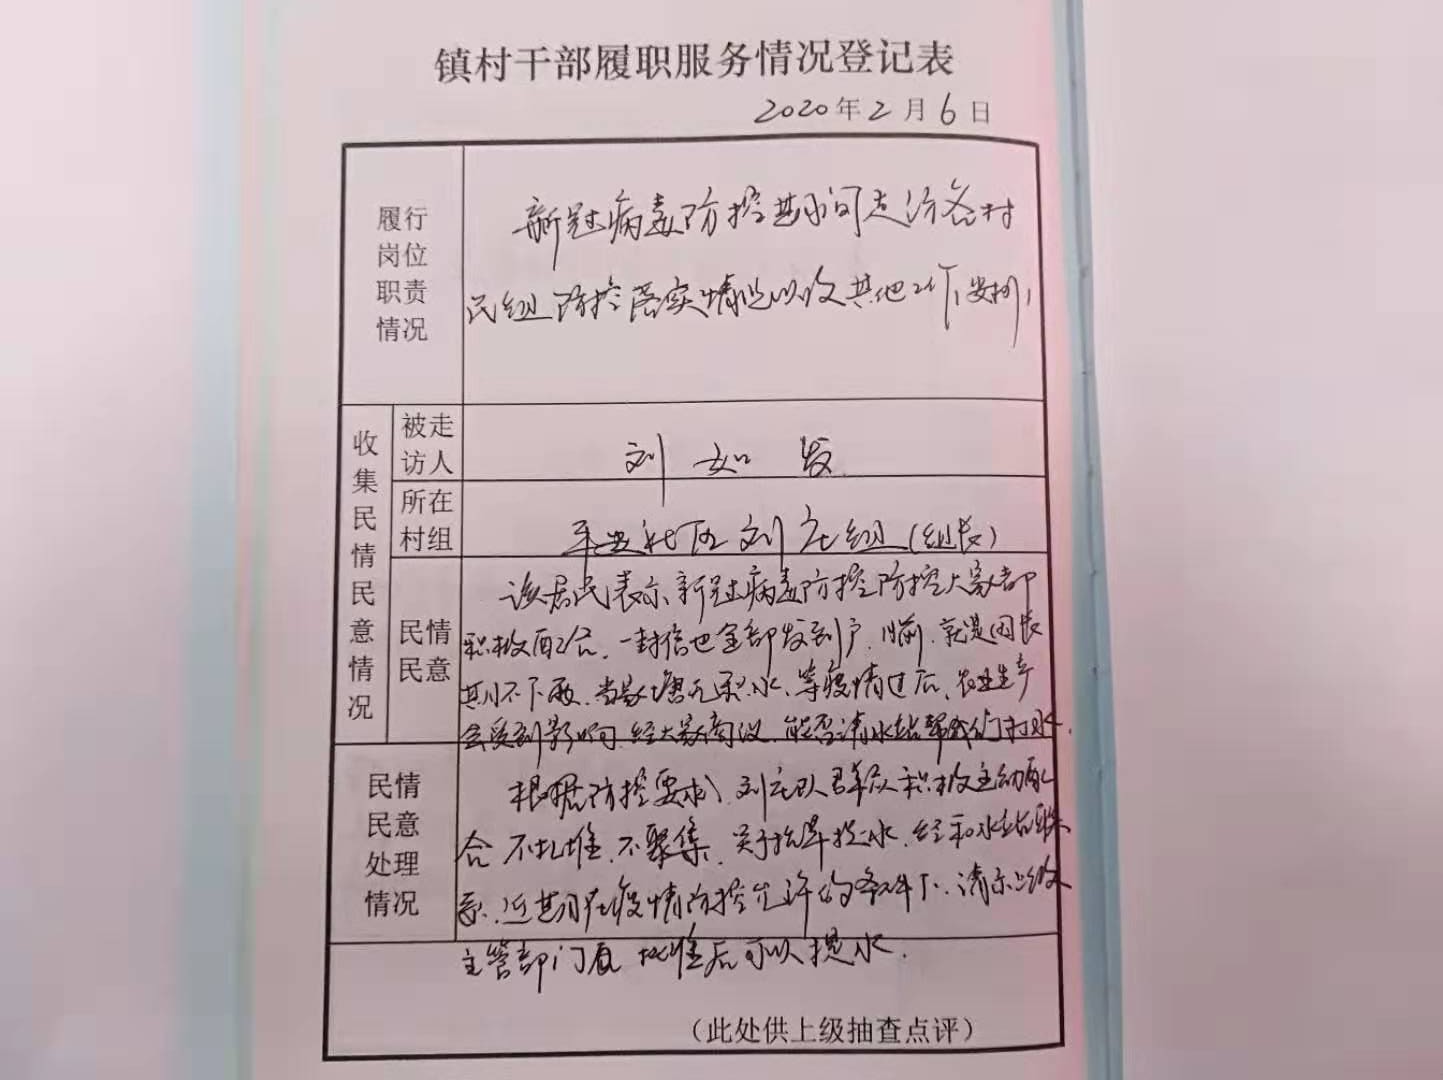 镇村干部履职服务情况登记表
2020年2月6日
履行
岗位
职责
情况
新冠病毒防控期间走访各村
民组防控落实情况以及其他工作安排
收集民情民意情况
被走
访人
刘如发
所在
村组
平安社区刘庄组(组长)
民情
民意
该居民表示、新冠病毒防控防控大家都
积极配合,一封信也全部发到户,目前,就是因长
期不下雨,当家塘无积水、等疫情过后、农业生产
会受到影响,经大家商议,能否请水站帮我们打水.
民情
民意
处理
情况
根据防控要求、刘庄队群众积极主动配
合不扎堆,不聚集,关于抗旱提水,经和水站联
系,近期在疫情防控允许的条件下,请示上级
主管部门 批准后可以提水.
(此处供上级抽查点评)